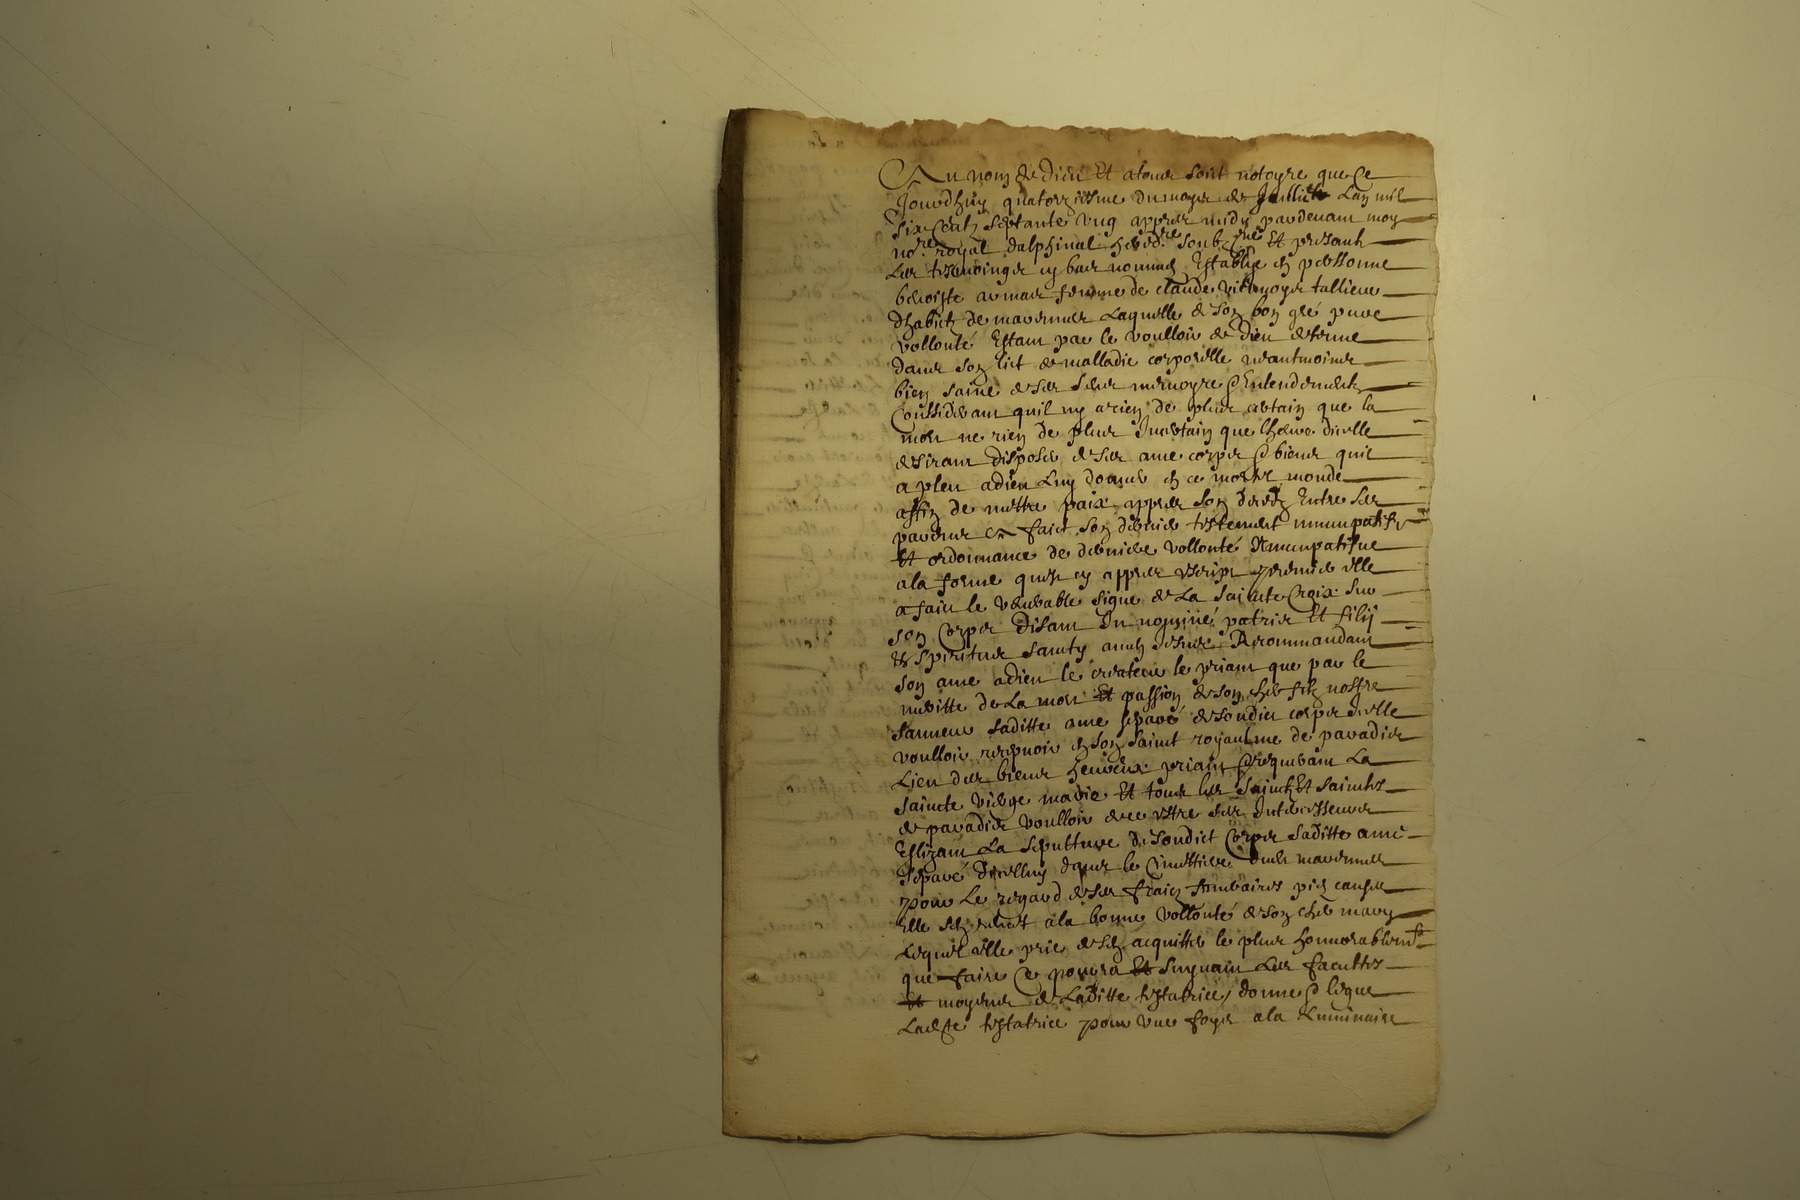 Au nom de dieu Et a tous soit notoyre que Ce
Jourdhuy quatorziesme du moys de Juillet Lan mil
Six Centz Septante ung appres midy pardevant moy
no.re royal dalphinal hered.re soub.ne Et presantz
Les tesmoingz cy bas nommes Establye en personne
benoiste armand femme de claude tallieur
dhabitz de Laquelle de son bon gré pure
vollonté Estant par le voulloir de dieu detenue
dans son lict de malladie corporelle neantmoins
bien saine de ses sens memoyre & Entendement
Considerant quil ny a rien de plus certain que la
mort ne rien de plus Incertain que lheure dicelle
desirant disposer de ses ame corps & biens quil
a pleu a dieu Luy donner en ce mortel monde
affin de mettre paix appres son deces Entre ses
parens a faict son dernier testement nuncupatif
Et ordonnance de derniere vollonté Nuncupatifue
a la forme quest cy appres escript premier elle
a faict le venerable signe de La Sainte Croix sur
son Corps disant In nominé patris Et filij
Et spiritus Sancty amen Jesus Recommandant
son ame a dieu le createur le priant que par le
meritte de La mort Et passion de son cher filz nostre
sauueur saditte ame separé de sondict corps Icelle
voulloir recepuoir en son sainct royaulme de paradis
Lieu des biens heureux priant & requerant La
Saincte vierge marie Et tous les Sainctz Et Sainctes
de paradis voulloir estre ses Intercesseurs
Eslizant La sepultture de sondict Corps saditte ame
separé dicelluy dans le Cimettiere dudit
pour Le regard de ses fraicz funeraires pies causes
Elle sen remet a la bonne vollonté de son cher mary
Lequel elle prie de sen acquitter le plus honnorablem.t
que faire Ce pourra Et suyuant Les facultes
Et moyens de Laditte testatrice, donne & legue
Ladite testatrice pour une foys a la Luminaire